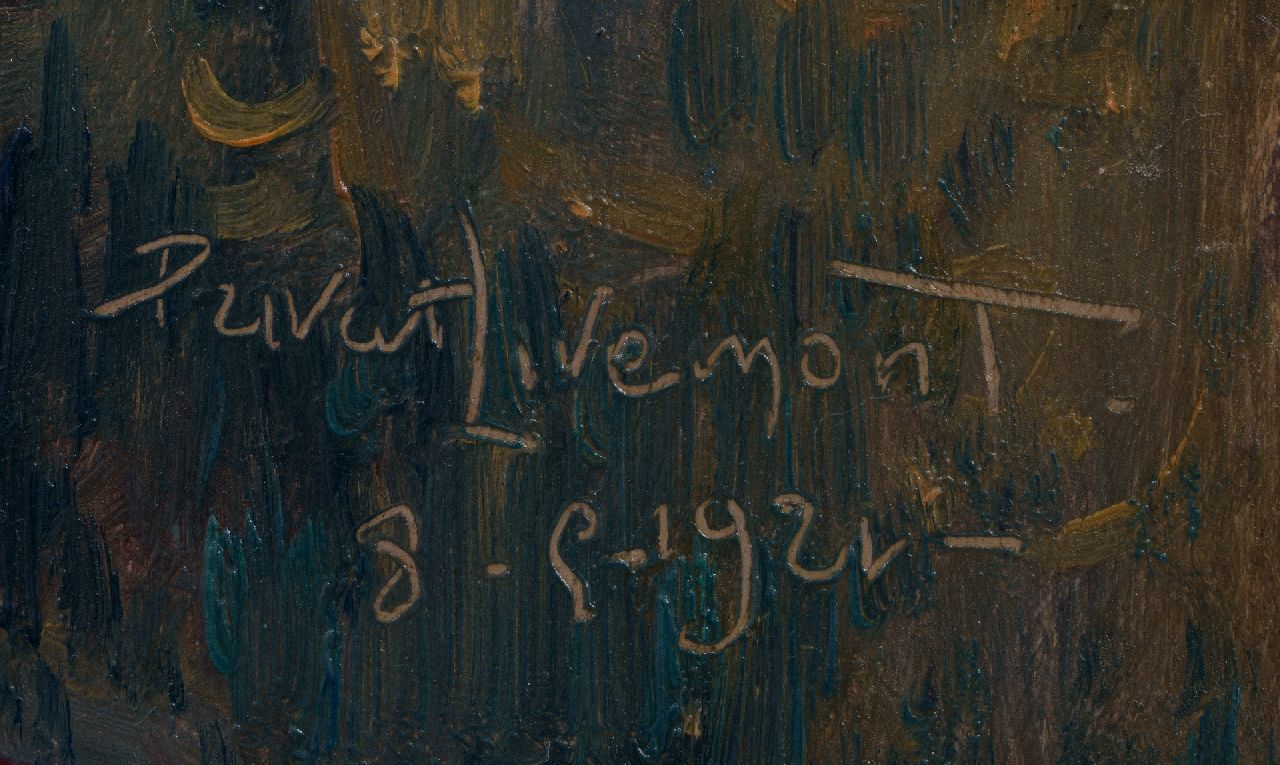 Privat Livemont.
8-5-1921-